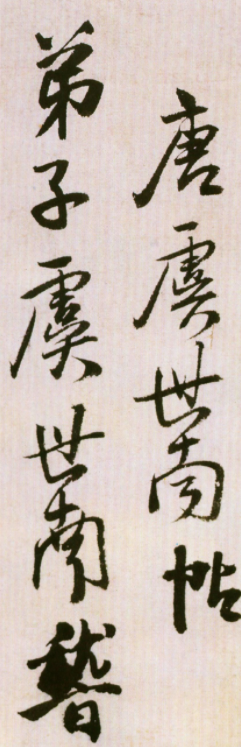 唐虞世南帖
弟子虞世南嵇